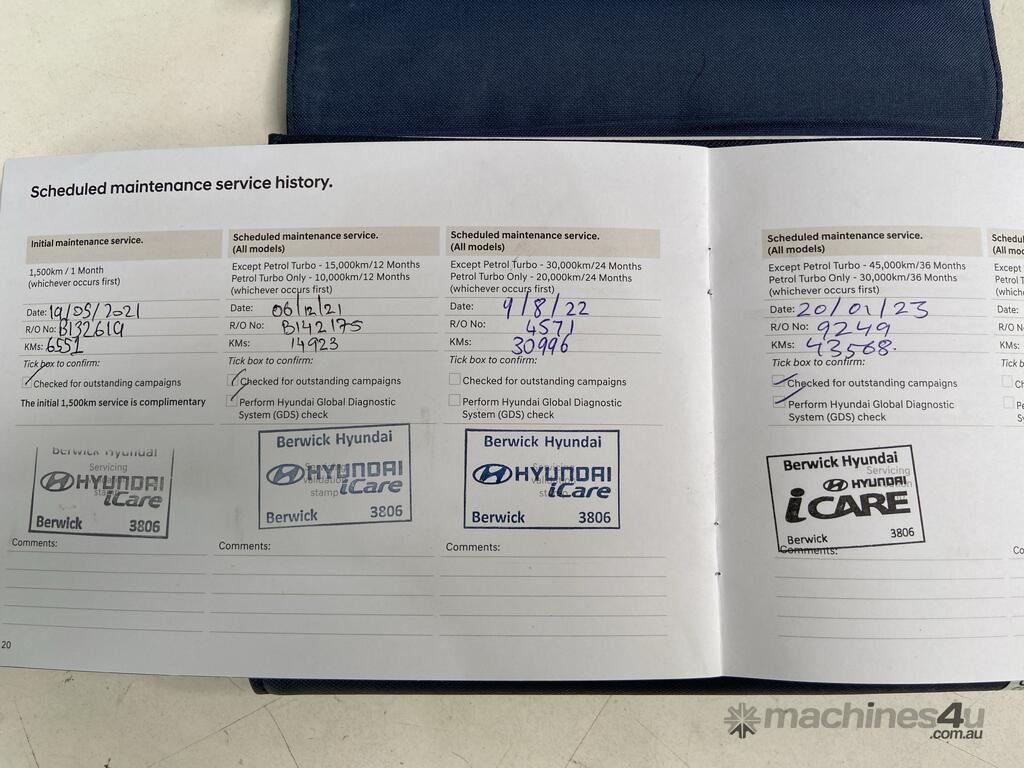 Scheduled maintenance service history.
Initial maintenance service.
1,500km / 1 Month
(whichever occurs first)
Date: 19/05/2021
R/O No: B132619
KMs: 6551
Tick box to confirm:
Checked for outstanding campaigns
The initial 1,500km service is complimentary
Berwick Hyundai
Servicing
HYUNDAI
iCare
Berwick 3806
Comments:
20
Scheduled maintenance service.
(All models)
Except Petrol Turbo - 15,000km/12 Months
Petrol Turbo Only - 10,000km/12 Months
(whichever occurs first)
Date: 06/12/21
R/O No: B142175
KMs: 14923
Tick box to confirm:
Checked for outstanding campaigns
Perform Hyundai Global Diagnostic
System (GDS) check
Berwick Hyundai
HYUNDAI
stamp iCare
Berwick 3806
Comments:
Scheduled maintenance service.
(All models)
Except Petrol Turbo - 30,000km/24 Months
Petrol Turbo Only - 20,000km/24 Months
(whichever occurs first)
Date: 9/8/22
R/O No: 4571
KMs: 30996
Tick box to confirm:
Checked for outstanding campaigns
Perform Hyundai Global Diagnostic
System (GDS) check
Berwick Hyundai
Servicing
HYUNDAI
iCare
Berwick 3806
Comments:
Scheduled maintenance service.
(All models)
Except Petrol Turbo - 45,000km/36 Months
Petrol Turbo Only - 30,000km/36 Months
(whichever occurs first)
Date: 20/01/23
R/O No: 9249
KMs: 43568.
Tick box to confirm:
Checked for outstanding campaigns
Perform Hyundai Global Diagnostic
System (GDS) check
Berwick Hyundai
Servicing
HYUNDAI
iCARE
Berwick 3806
Comments:
(All mode
Except
Petrol T
(whiche
Date:
R/O No
KMs:
Tick bo
Ch
Pe
Sy
Co
machines4u
.com.au